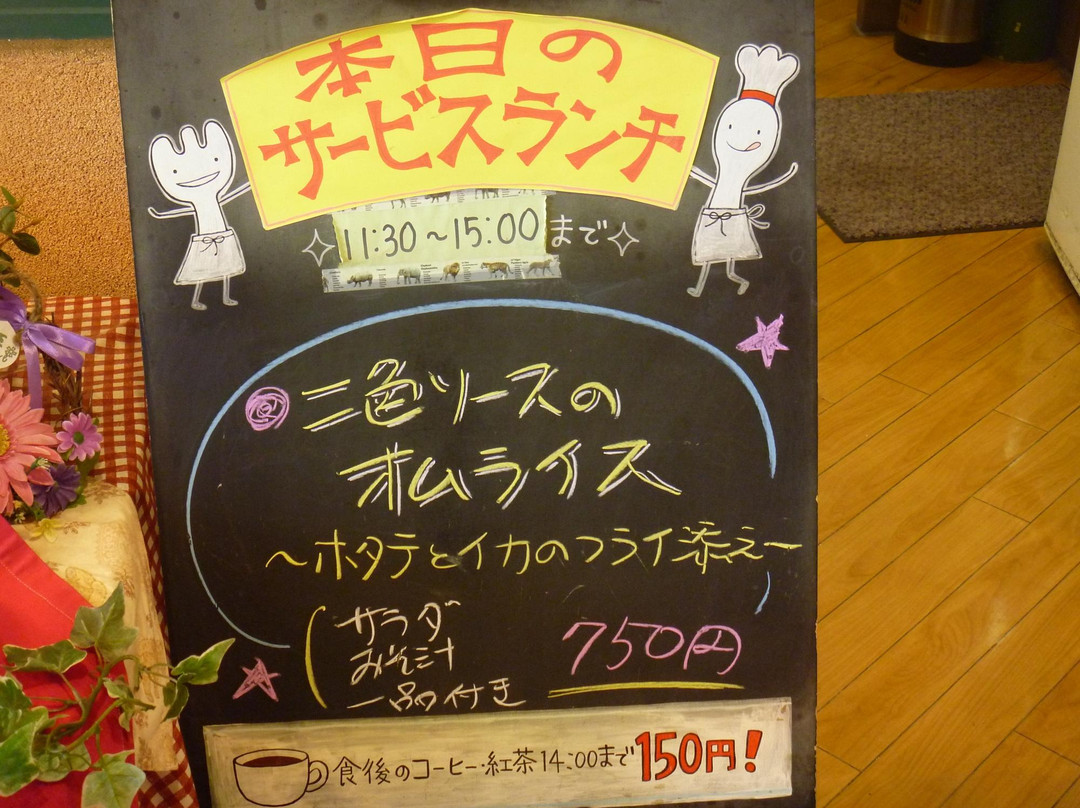 本日の
サービスランチ
11:30～15:00まで
二色ソースの
オムライス
～ホタテとイカのフライ添え～
サラダ
みそ汁
一品付き
750円
食後のコーヒー・紅茶14:00まで150円!